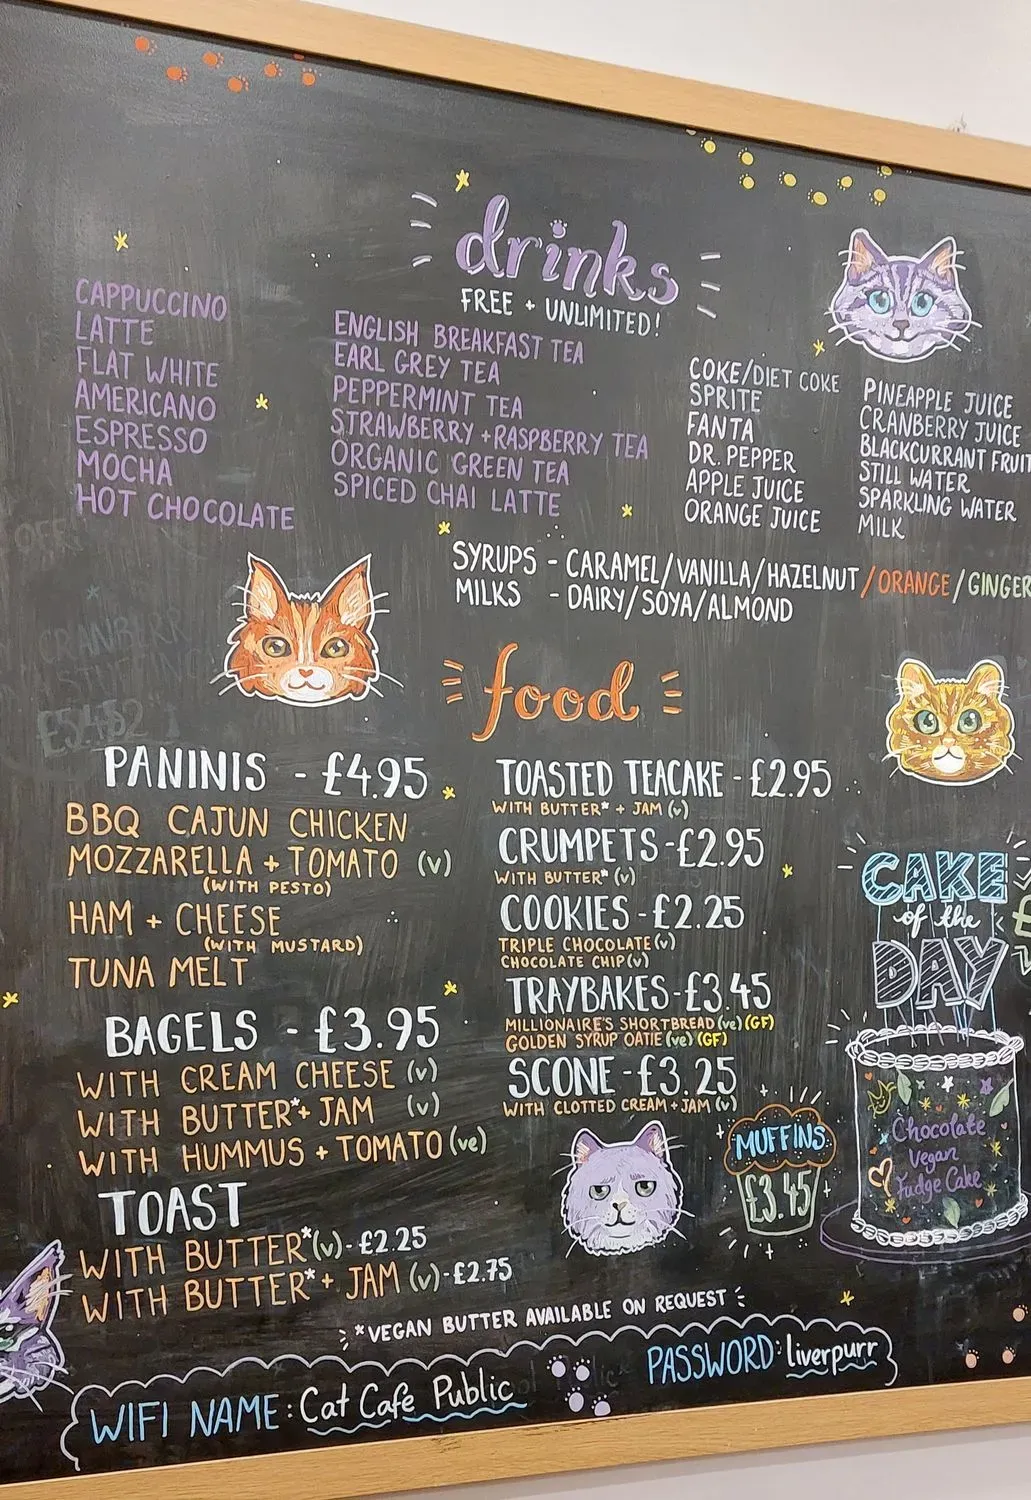 drinks
FREE + UNLIMITED!
CAPPUCCINO
LATTE
FLAT WHITE
AMERICANO
ESPRESSO
MOCHA
HOT CHOCOLATE
ENGLISH BREAKFAST TEA
EARL GREY TEA
PEPPERMINT TEA
STRAWBERRY + RASPBERRY TEA
ORGANIC GREEN TEA
SPICED CHAI LATTE
COKE/DIET COKE
SPRITE
FANTA
DR. PEPPER
APPLE JUICE
ORANGE JUICE
PINEAPPLE JUICE
CRANBERRY JUICE
BLACKCURRANT FRUIT
STILL WATER
SPARKLING WATER
MILK
SYRUPS - CARAMEL/VANILLA/HAZELNUT/ORANGE/GINGER
MILKS - DAIRY/SOYA/ALMOND
food
PANINIS - £4.95
BBQ CAJUN CHICKEN
MOZZARELLA + TOMATO (v)
(WITH PESTO)
HAM + CHEESE
(WITH MUSTARD)
TUNA MELT
BAGELS - £3.95
WITH CREAM CHEESE (v)
WITH BUTTER* + JAM (v)
WITH HUMMUS + TOMATO (ve)
TOAST
WITH BUTTER* (v) - £2.25
WITH BUTTER* + JAM (v) - £2.75
TOASTED TEACAKE - £2.95
WITH BUTTER* + JAM (v)
CRUMPETS - £2.95
WITH BUTTER* (v)
COOKIES - £2.25
TRIPLE CHOCOLATE (v)
CHOCOLATE CHIP (v)
TRAYBAKES - £3.45
MILLIONAIRE'S SHORTBREAD (ve) (GF)
GOLDEN SYRUP OATIE (ve) (GF)
SCONE - £3.25
WITH CLOTTED CREAM + JAM (v)
MUFFINS
£3.45
CAKE
of the
DAY
Chocolate
Vegan
Fudge Cake
*VEGAN BUTTER AVAILABLE ON REQUEST
WIFI NAME: Cat Cafe Public
PASSWORD: liverpurr